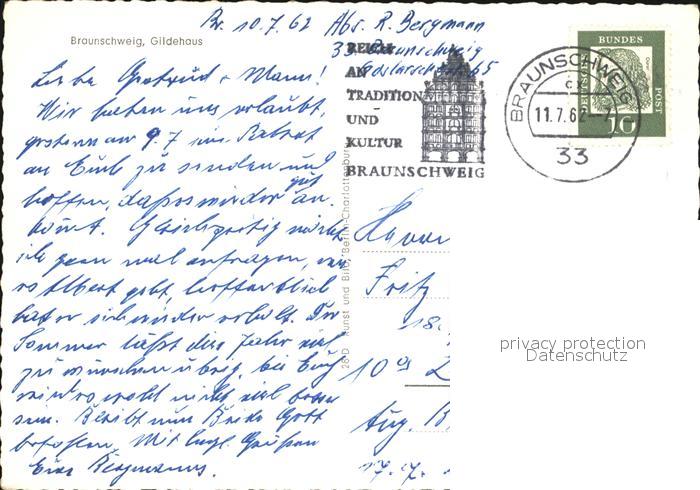 Br. 10.7.62 Abs. R. Bergmann
33 Braunschweig
Goslarsche 65
Braunschweig, Gildehaus
Liebe Gertrud + Mann!
Wir haben uns erlaubt,
gestern am 9.7 ein Paket
an Euch zu senden und
hoffen, dass es wieder gut an-
kommt. Gleichzeitig möchte
ich gern mal anfragen, wie
es Albert geht, hoffentlich
hat er sich wieder erholt. Der
Sommer läßt dies Jahr viel
zu wünschen übrig, bei Euch
wird es wohl nicht viel besser
sein. Bleibt nun Beide Gott
befohlen. Mit herzl. Grüßen
Eure Bergmanns.
REICH
AN
TRADITION
UND
KULTUR
BRAUNSCHWEIG
BRAUNSCHWEIG
11.7.62
33
DEUTSCHE BUNDES POST
10
Kunst und Bild, Berlin-Charlottenburg
Herrn
Fritz
10
Aug.
17.
privacy protection
Datenschutz